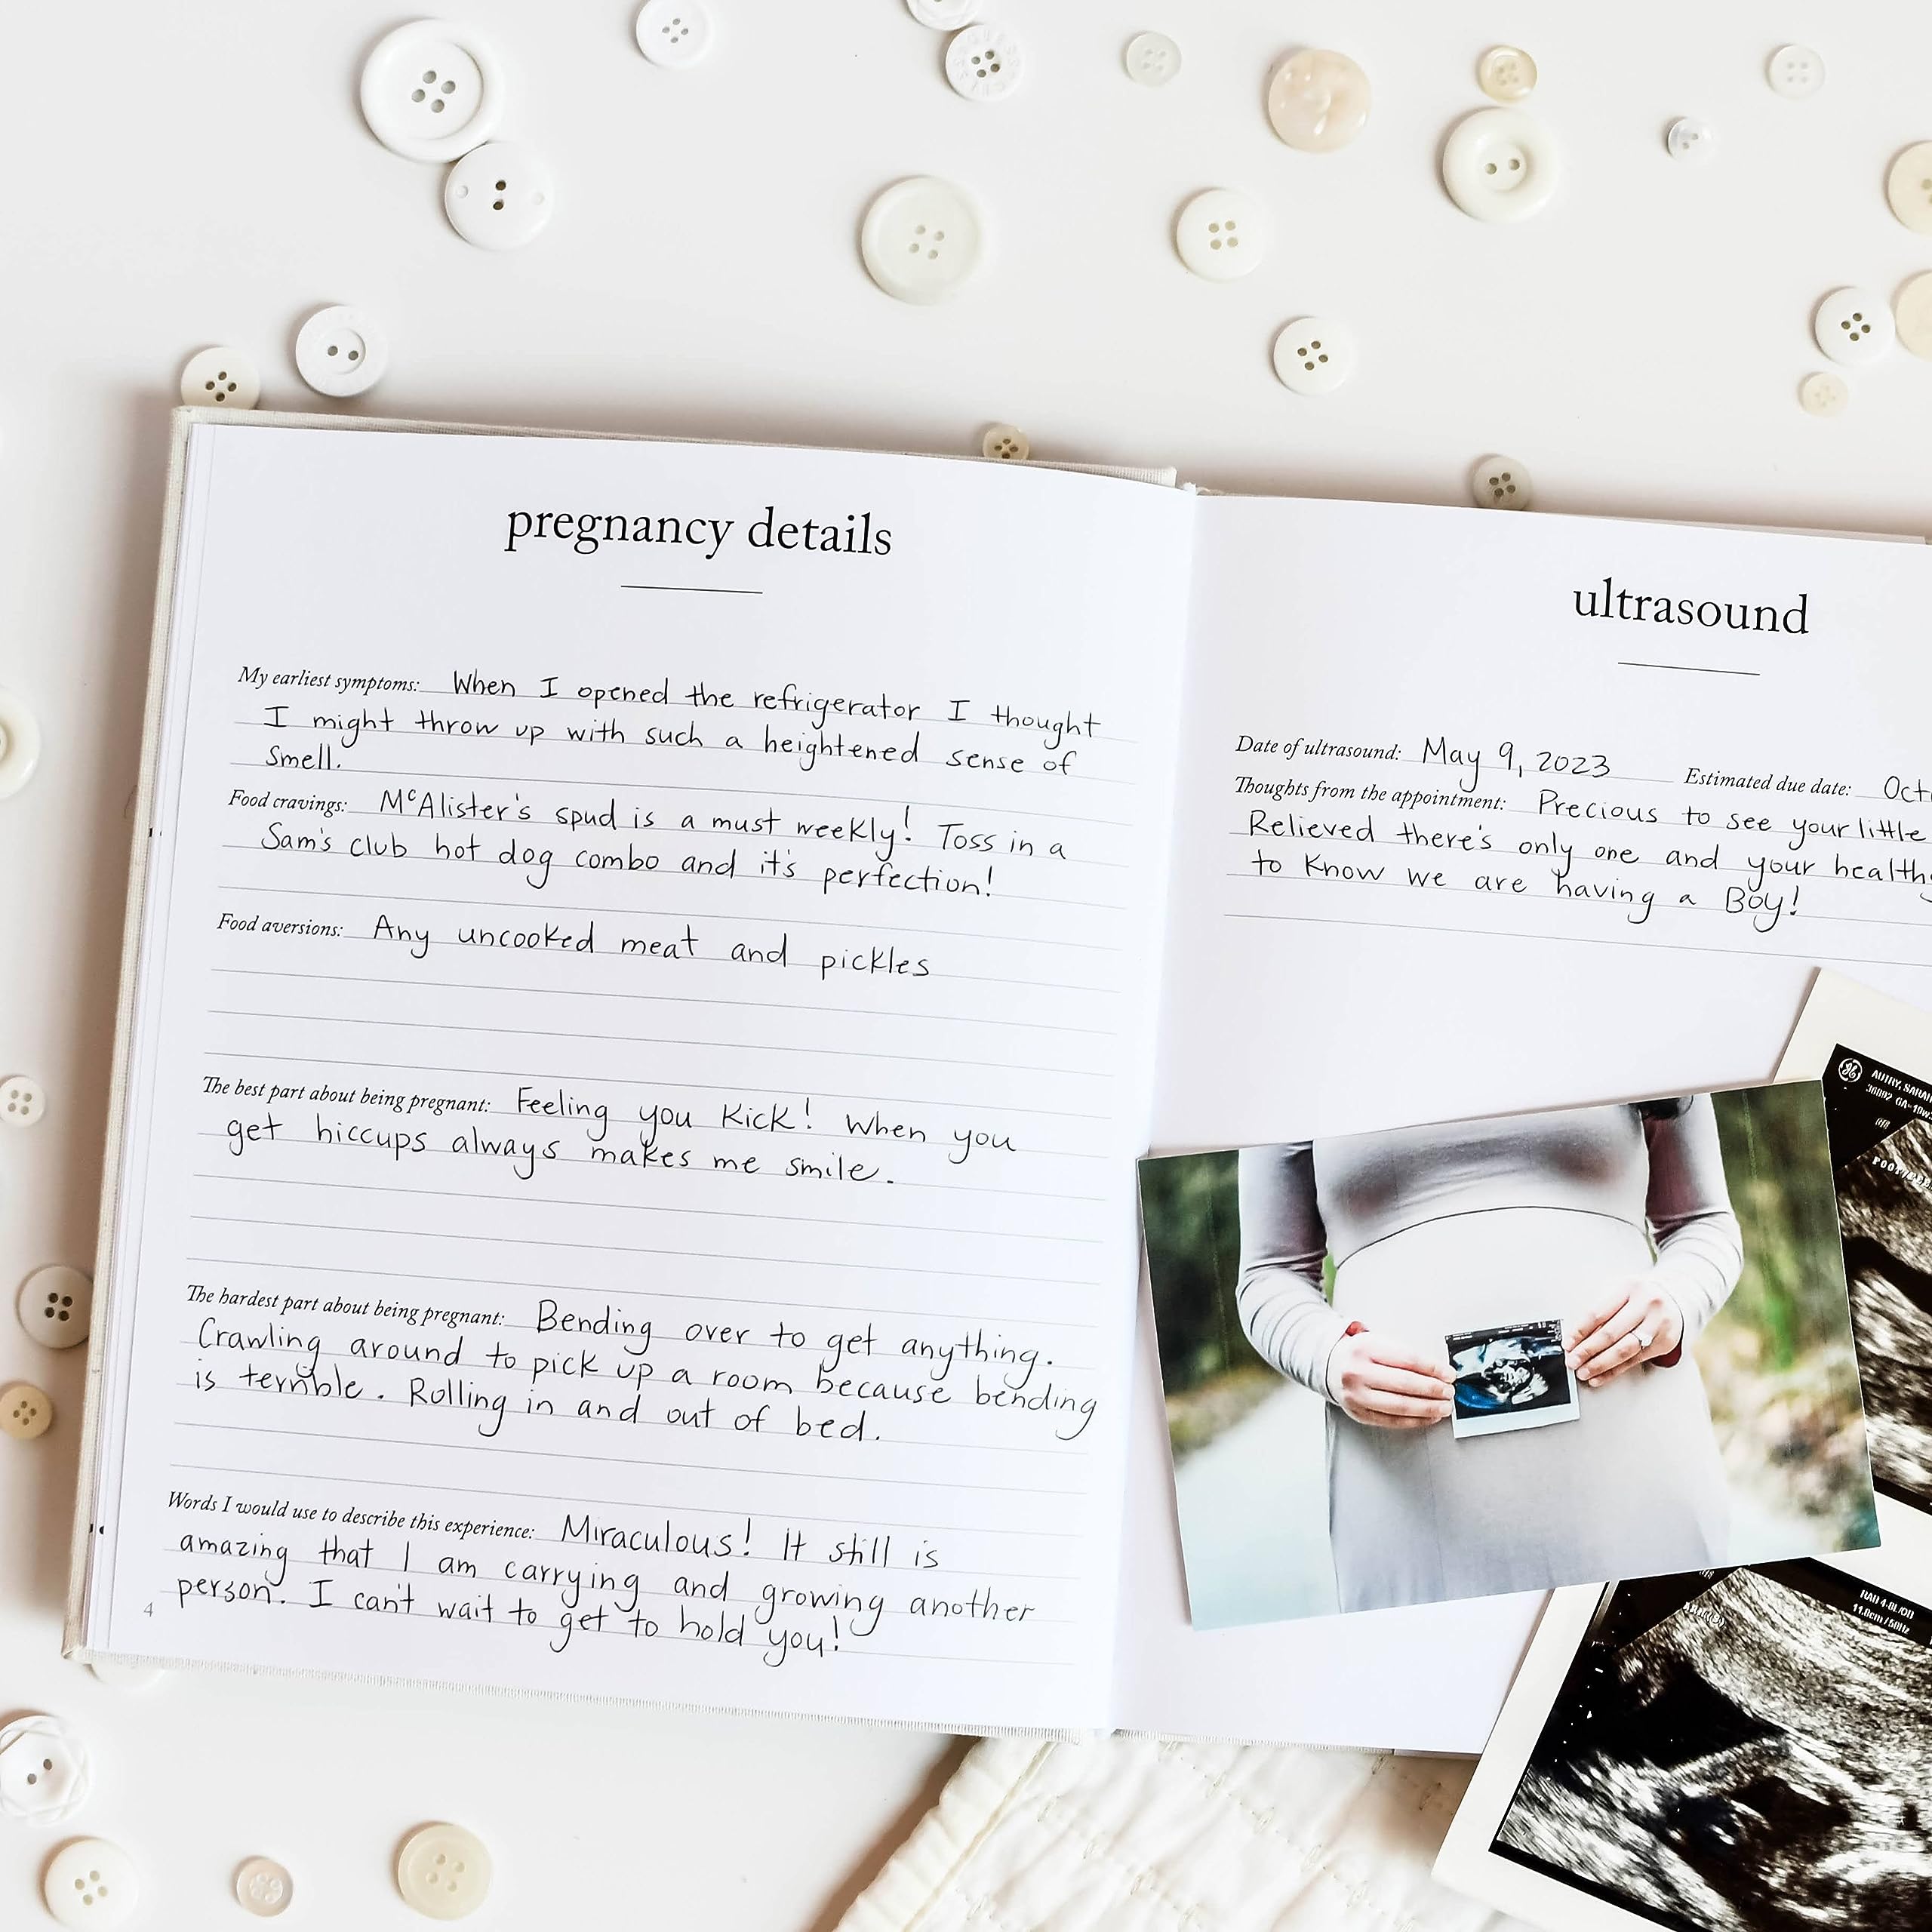 pregnancy details
My earliest symptoms: When I opened the refrigerator I thought
I might throw up with such a heightened sense of
smell.
Food cravings: McAlister's spud is a must weekly! Toss in a
Sam's club hot dog combo and it's perfection!
Food aversions: Any uncooked meat and pickles
The best part about being pregnant: Feeling you Kick! When you
get hiccups always makes me smile.
The hardest part about being pregnant: Bending over to get anything.
Crawling around to pick up a room because bending
is terrible. Rolling in and out of bed.
Words I would use to describe this experience: Miraculous! It still is
amazing that I am carrying and growing another
person. I can't wait to get to hold you!
4
ultrasound
Date of ultrasound: May 9, 2023 Estimated due date:
Thoughts from the appointment: Precious to see your little
Relieved there's only one and your
to Know we are having a Boy!
GE
AUTRY, SARAH
RAB 4-8L/OB
11.8cm/58Hz